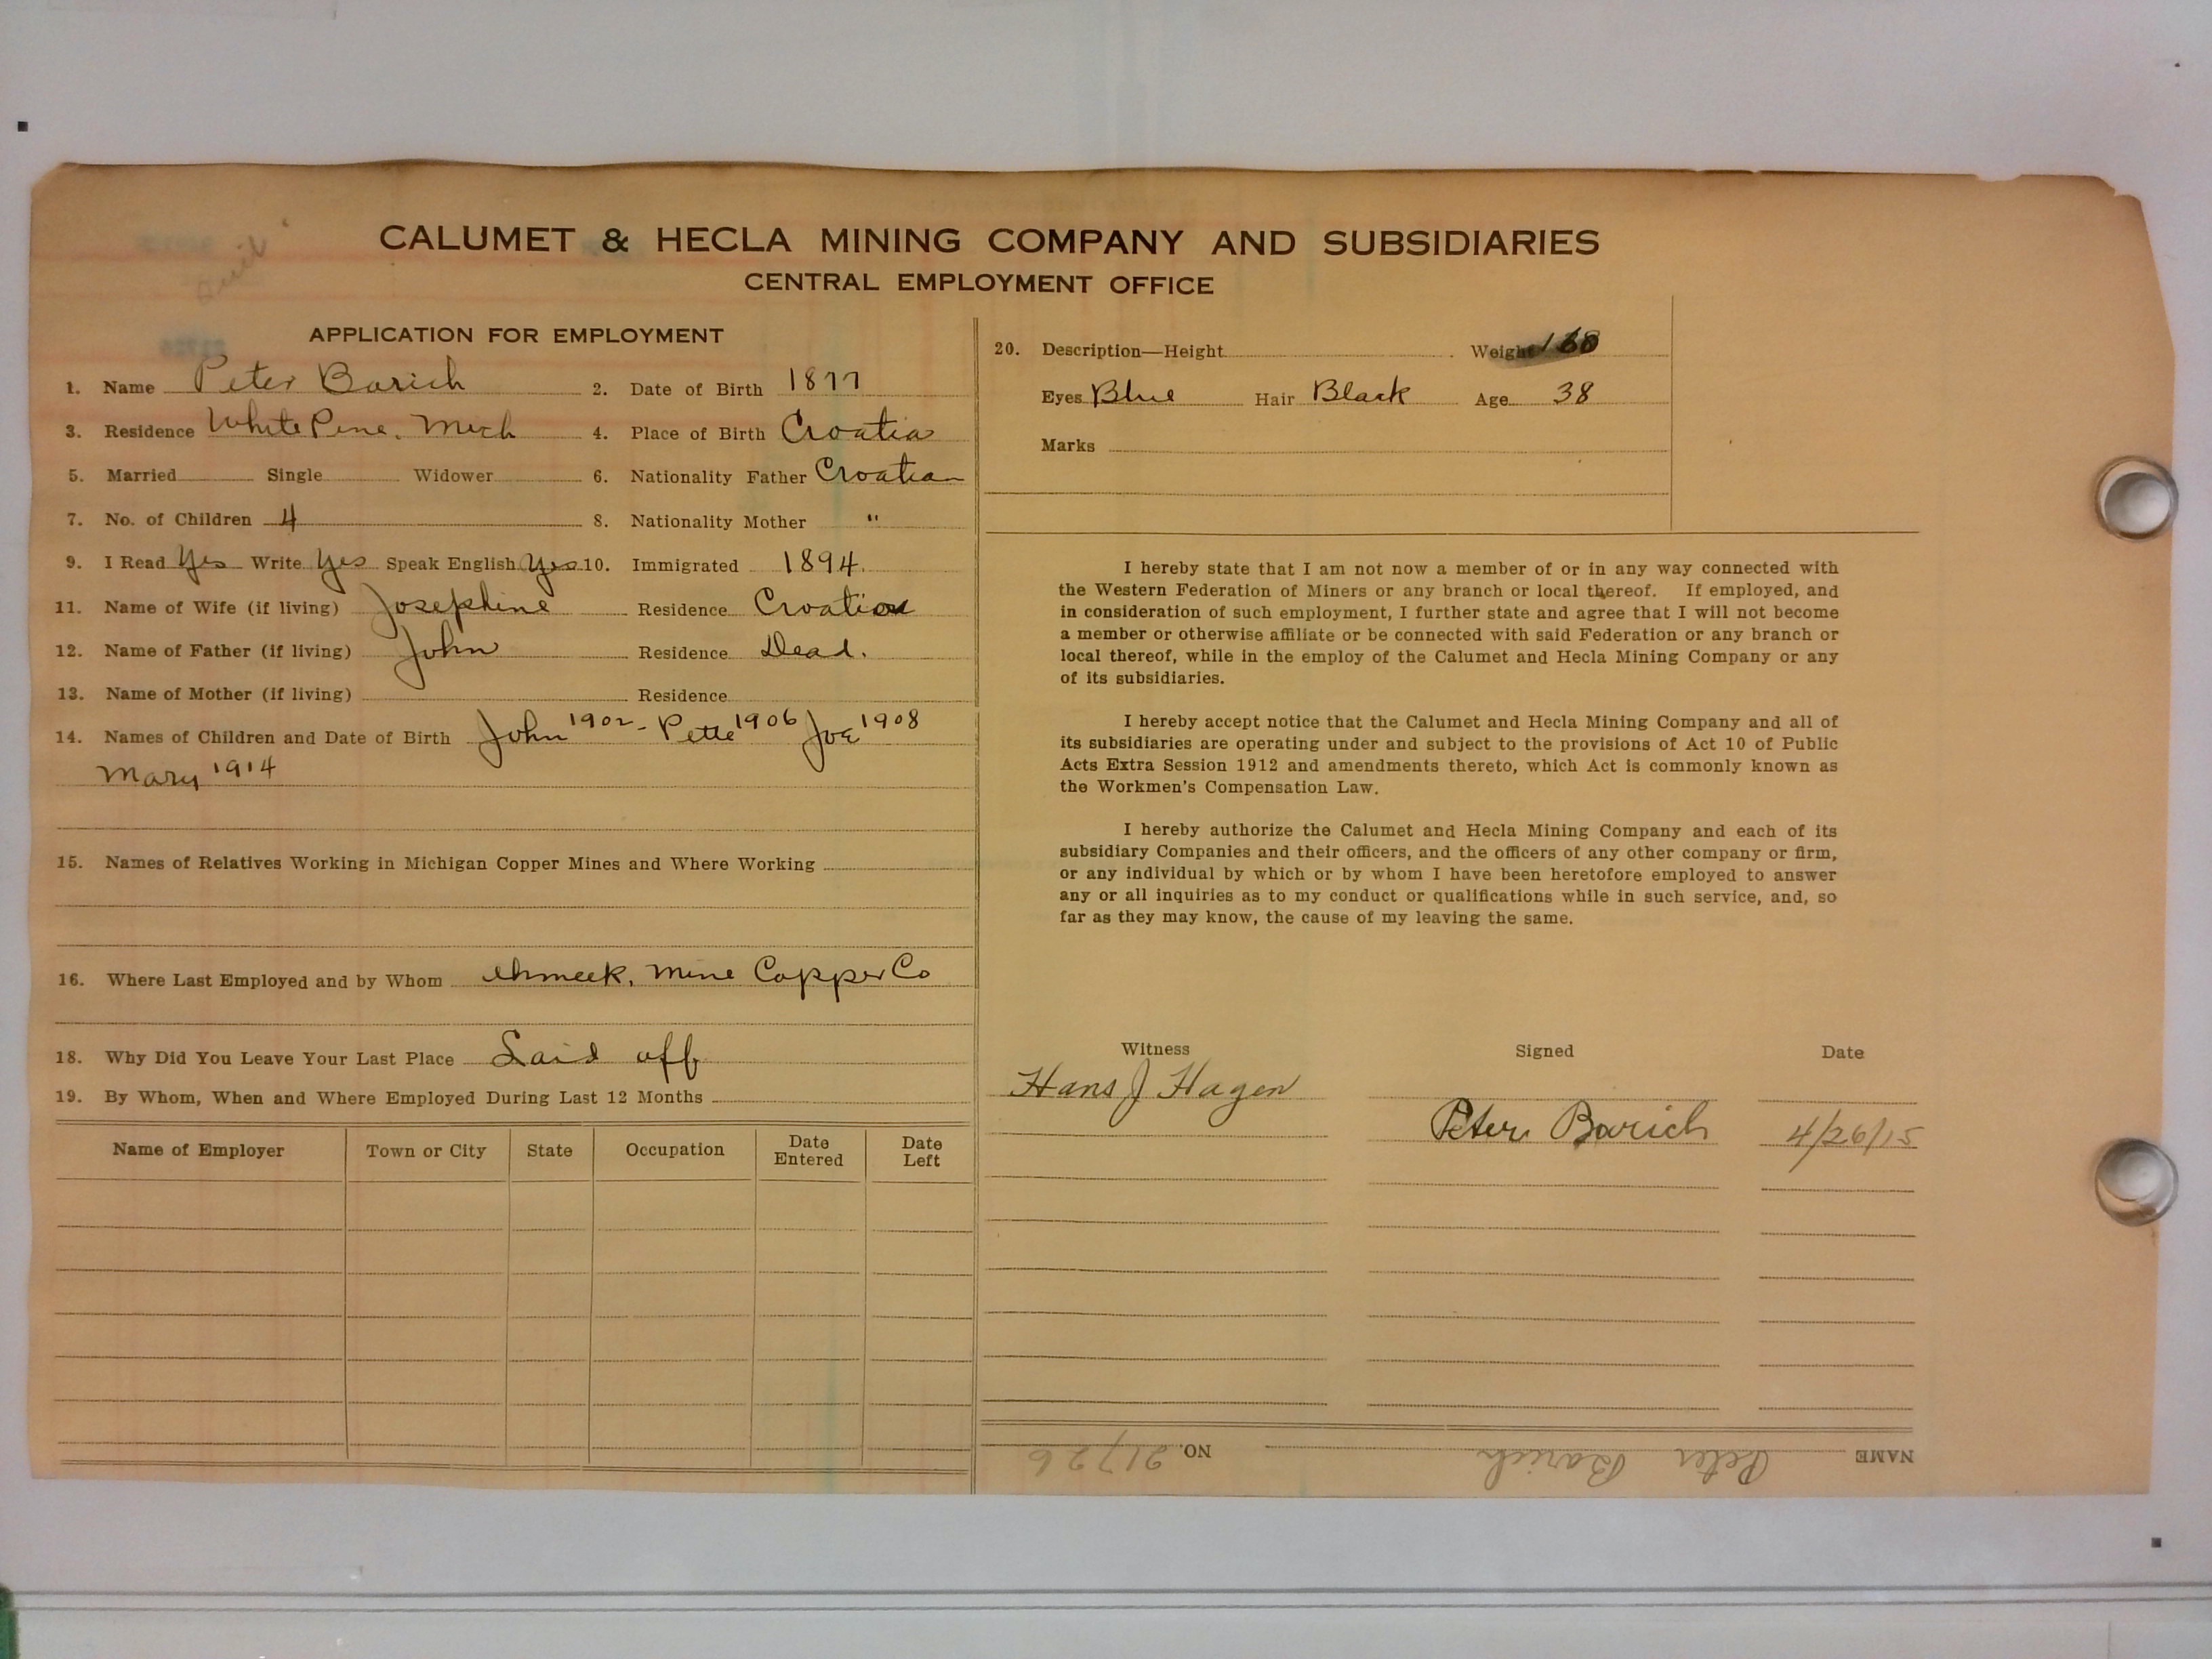 Quit
CALUMET & HECLA MINING COMPANY AND SUBSIDIARIES
CENTRAL EMPLOYMENT OFFICE
APPLICATION FOR EMPLOYMENT
1. Name Peter Barich 2. Date of Birth 1877
3. Residence White Pine, Mich 4. Place of Birth Croatia
5. Married Single Widower 6. Nationality Father Croatian
7. No. of Children 4 8. Nationality Mother "
9. I Read Yes Write Yes Speak English Yes 10. Immigrated 1894.
11. Name of Wife (if living) Josephine Residence Croatia
12. Name of Father (if living) John Residence Dead.
13. Name of Mother (if living) Residence
14. Names of Children and Date of Birth John 1902 - Pette 1906 Joe 1908
Mary 1914
15. Names of Relatives Working in Michigan Copper Mines and Where Working
16. Where Last Employed and by Whom Ahmeek, Mine Copper Co
18. Why Did You Leave Your Last Place Laid off
19. By Whom, When and Where Employed During Last 12 Months
Name of Employer Town or City State Occupation Date Entered Date Left
20. Description—Height Weight 168
Eyes Blue Hair Black Age 38
Marks
I hereby state that I am not now a member of or in any way connected with
the Western Federation of Miners or any branch or local thereof. If employed, and
in consideration of such employment, I further state and agree that I will not become
a member or otherwise affiliate or be connected with said Federation or any branch or
local thereof, while in the employ of the Calumet and Hecla Mining Company or any
of its subsidiaries.
I hereby accept notice that the Calumet and Hecla Mining Company and all of
its subsidiaries are operating under and subject to the provisions of Act 10 of Public
Acts Extra Session 1912 and amendments thereto, which Act is commonly known as
the Workmen's Compensation Law.
I hereby authorize the Calumet and Hecla Mining Company and each of its
subsidiary Companies and their officers, and the officers of any other company or firm,
or any individual by which or by whom I have been heretofore employed to answer
any or all inquiries as to my conduct or qualifications while in such service, and, so
far as they may know, the cause of my leaving the same.
Witness Signed Date
Hans J Hagen
Peter Barich 4/26/15
NAME Peter Barich NO. 21726